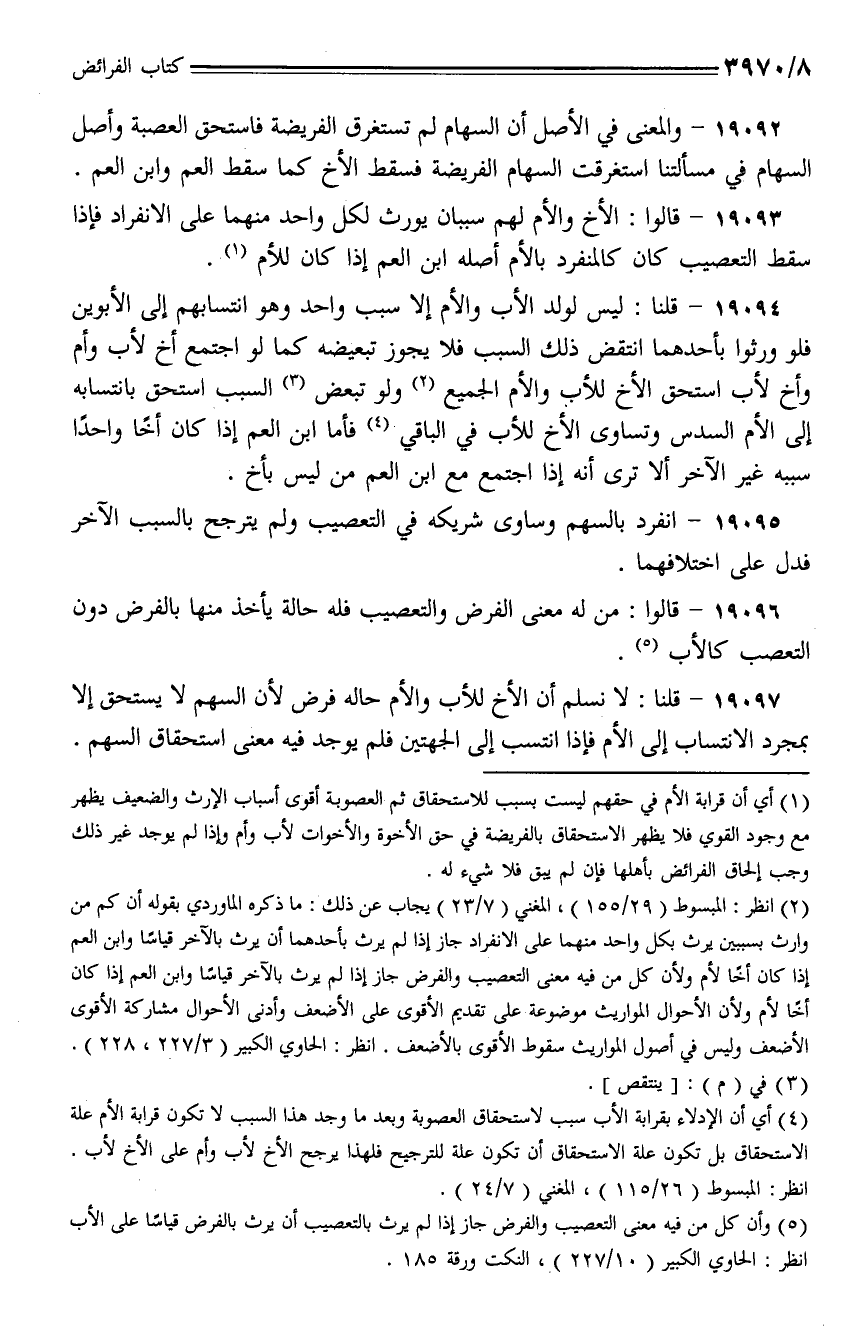 ٣٩٧٠/٨ كتاب الفرائض
١٩٠٩٢ - والمعنى في الأصل أن السهام لم تستغرق الفريضة فاستحق العصبة وأصل
السهام في مسألتنا استغرقت السهام الفريضة فسقط الأخ كما سقط العم وابن العم .
١٩٠٩٣ - قالوا : الأخ والأم لهم سببان يورث لكل واحد منهما على الانفراد فإذا
سقط التعصيب كان كالمنفرد بالأم أصله ابن العم إذا كان للأم (١) .
١٩٠٩٤ - قلنا : ليس لولد الأب والأم إلا سبب واحد وهو انتسابهم إلى الأبوين
فلو ورثوا بأحدهما انتقض ذلك السبب فلا يجوز تبعيضه كما لو اجتمع أخ لأب وأم
وأخ لأب استحق الأخ للأب والأم الجميع (٢) ولو تبعض (٣) السبب استحق بانتسابه
إلى الأم السدس وتساوى الأخ للأب في الباقي (٤) فأما ابن العم إذا كان أخًا واحدًا
سببه غير الآخر ألا ترى أنه إذا اجتمع مع ابن العم من ليس بأخ .
١٩٠٩٥ - انفرد بالسهم وساوى شريكه في التعصيب ولم يترجح بالسبب الآخر
فدل على اختلافهما .
١٩٠٩٦ - قالوا : من له معنى الفرض والتعصيب فله حالة يأخذ منها بالفرض دون
التعصب كالأب (٥) .
١٩٠٩٧ - قلنا : لا نسلم أن الأخ للأب والأم حاله فرض لأن السهم لا يستحق إلا
بمجرد الانتساب إلى الأم فإذا انتسب إلى الجهتين فلم يوجد فيه معنى استحقاق السهم .
(١) أي أن قرابة الأم في حقهم ليست بسبب للاستحقاق ثم العصوبة أقوى أسباب الإرث والضعيف يظهر
مع وجود القوي فلا يظهر الاستحقاق بالفريضة في حق الأخوة والأخوات لأب وأم وإذا لم يوجد غير ذلك
وجب إلحاق الفرائض بأهلها فإن لم يبق فلا شيء له .
(٢) انظر : المبسوط ( ١٥٥/٢٩ ) ، المغني ( ٢٣/٧ ) يجاب عن ذلك : ما ذكره الماوردي بقوله أن كم من
وارث بسببين يرث بكل واحد منهما على الانفراد جاز إذا لم يرث بأحدهما أن يرث بالآخر قياسًا وابن العم
إذا كان أخًا لأم ولأن كل من فيه معنى التعصيب والفرض جاز إذا لم يرث بالآخر قياسًا وابن العم إذا كان
أخًا لأم ولأن الأحوال المواريث موضوعة على تقديم الأقوى على الأضعف وأدنى الأحوال مشاركة الأقوى
الأضعف وليس في أصول المواريث سقوط الأقوى بالأضعف . انظر : الحاوي الكبير ( ٢٢٧/٣ ، ٢٢٨ ) .
(٣) في ( م ) : [ ينتقص ] .
(٤) أي أن الإدلاء بقرابة الأب سبب لاستحقاق العصوبة وبعد ما وجد هذا السبب لا تكون قرابة الأم علة
الاستحقاق بل تكون علة الاستحقاق أن تكون علة للترجيح فلهذا يرجح الأخ لأب وأم على الأخ لأب .
انظر : المبسوط ( ١١٥/٢٦ ) ، المغني ( ٢٤/٧ ) .
(٥) وأن كل من فيه معنى التعصيب والفرض جاز إذا لم يرث بالتعصيب أن يرث بالفرض قياسًا على الأب
انظر : الحاوي الكبير ( ٢٢٧/١٠ ) ، النكت ورقة ١٨٥ .